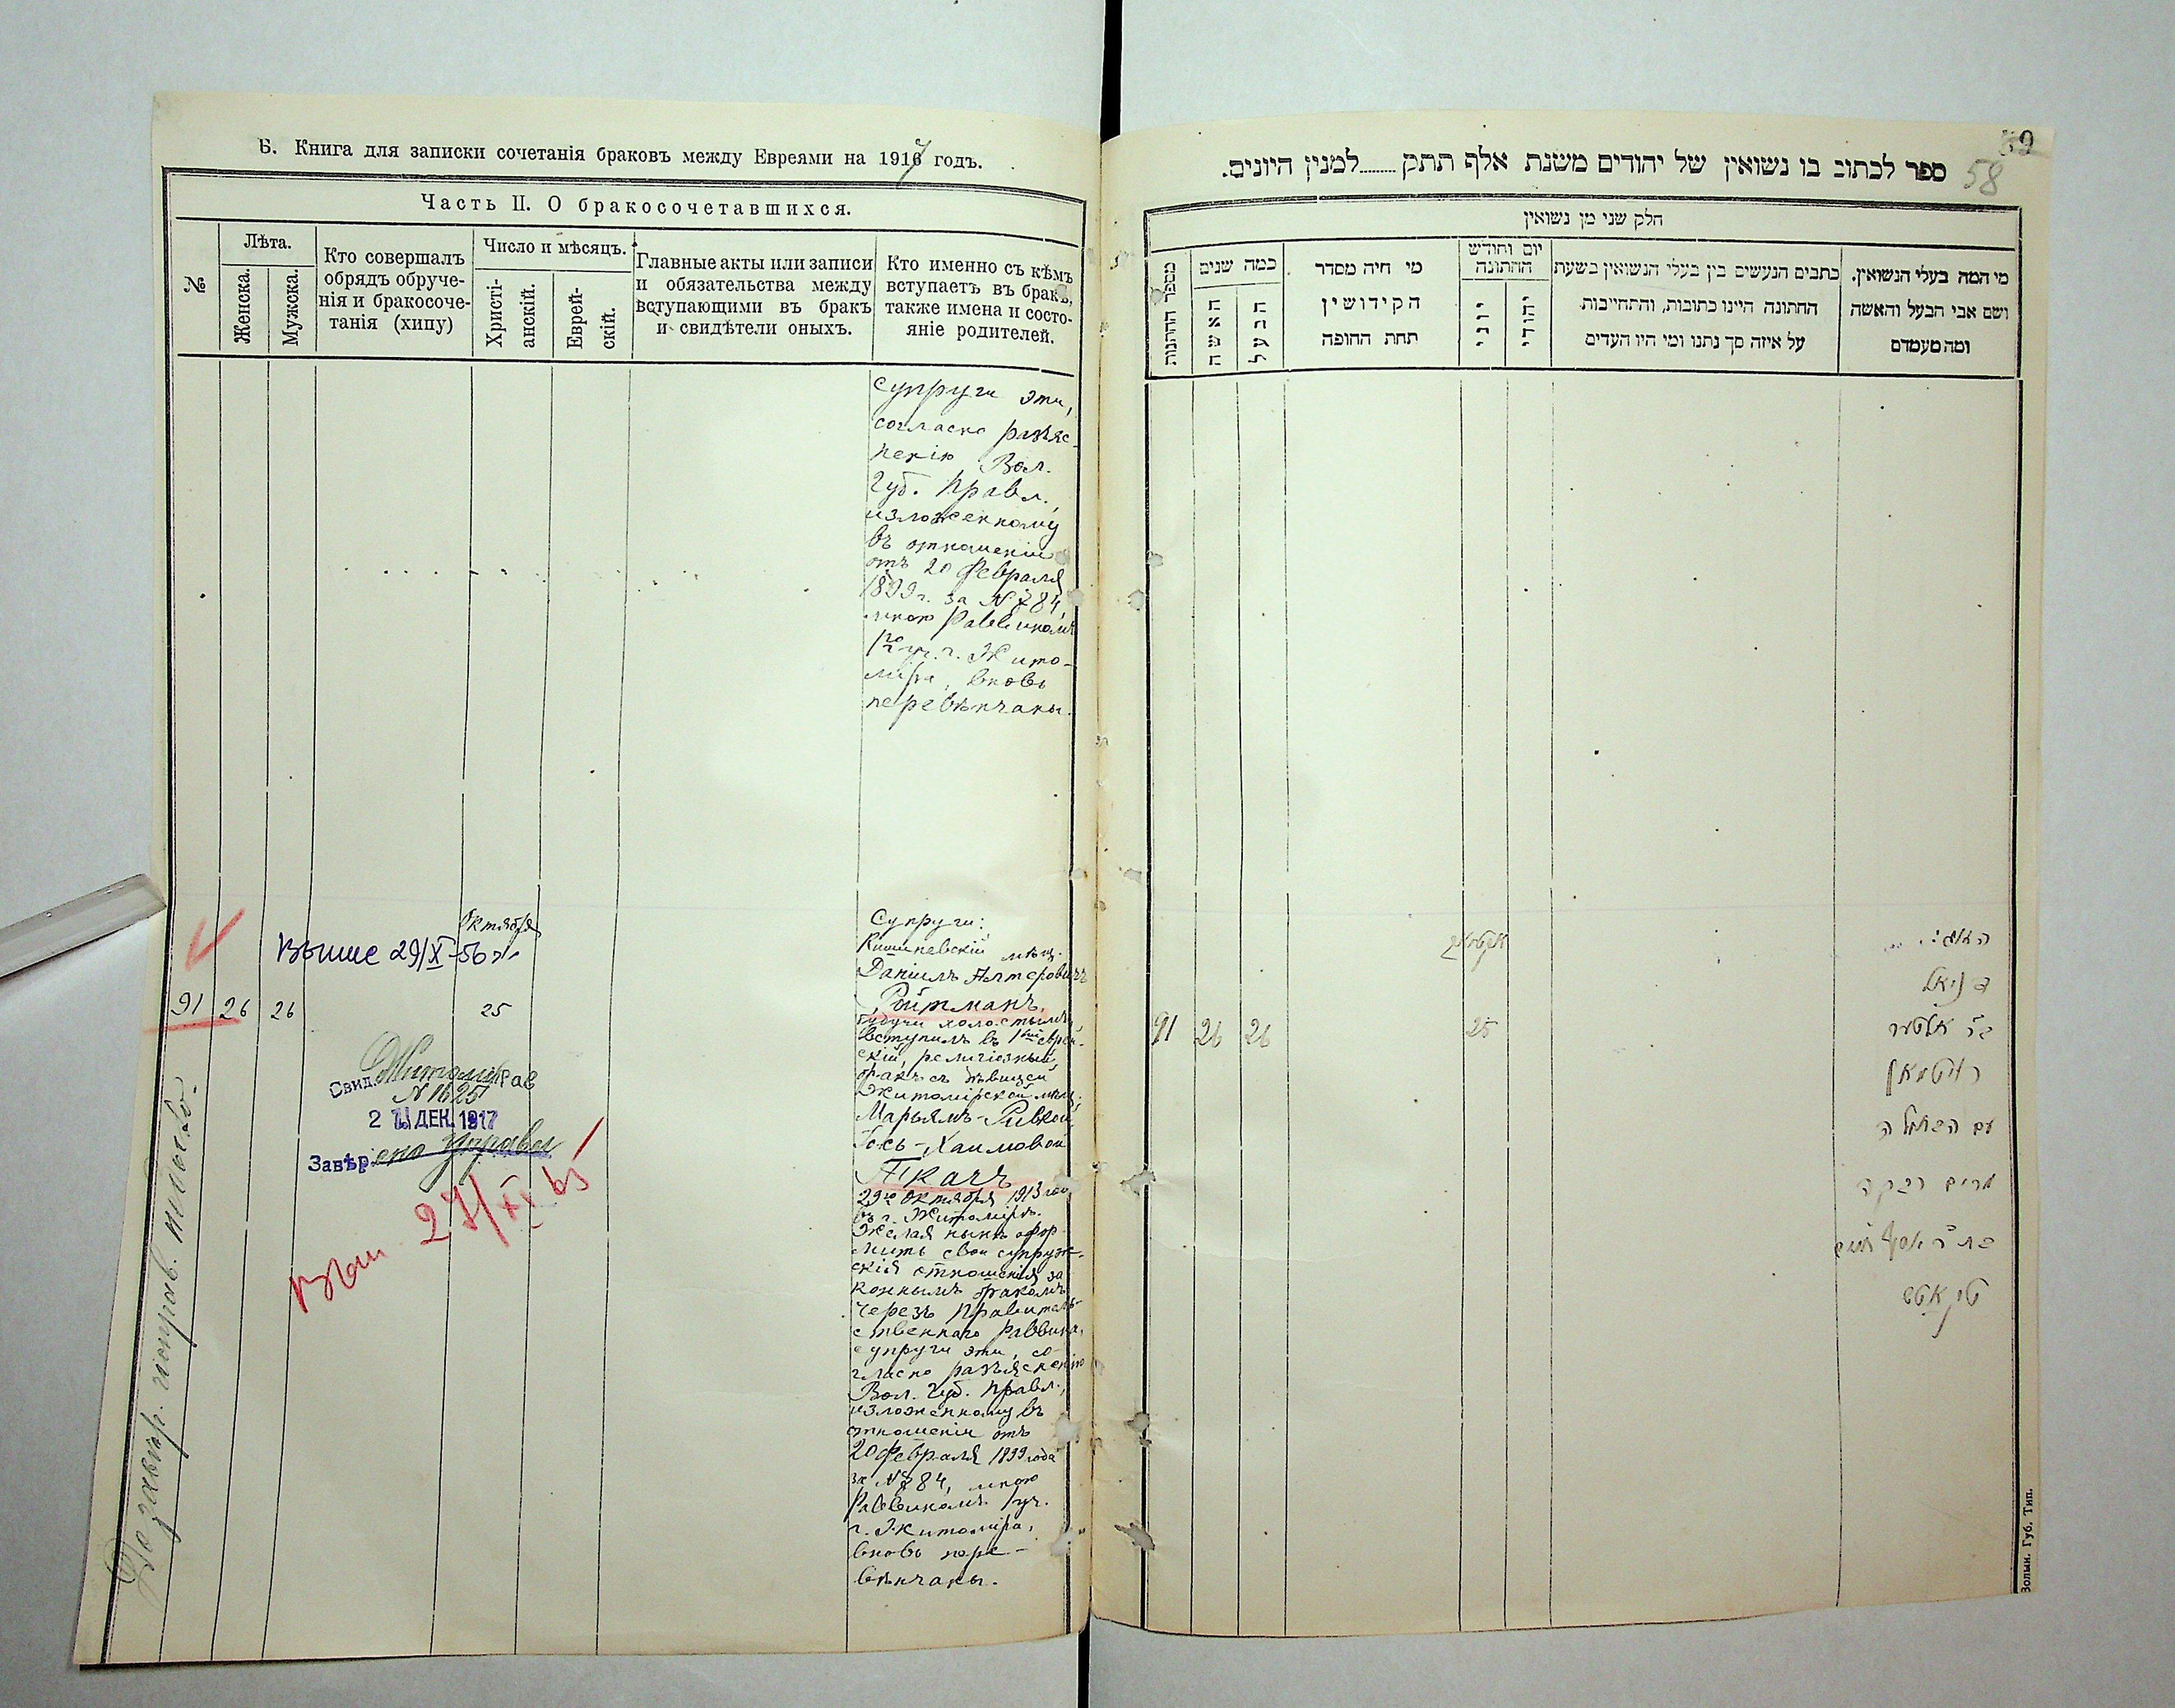 Б. Книга для записки сочетанія браковъ между Евреями на 1917 годъ.
Часть II. О бракосочетавшихся.
№
Лѣта.
Женска.
Мужска.
Кто совершалъ
обрядъ обруче-
нія и бракосоче-
танія (хипу)
Число и мѣсяцъ.
Христі-
анскій.
Еврей-
скій.
Главные акты или записи
и обязательства между
вступающими въ бракъ
и свидѣтели оныхъ.
Кто именно съ кѣмъ
вступаетъ въ бракъ,
также имена и состо-
яніе родителей.
Супруги эти,
согласно разъяс-
ненію Вол.
Губ. Правл.,
изложенному
въ отношеніи
отъ 20 Февраля
1899 г. за № 784,
мною Раввиномъ
1го уч. г. Жито-
міра, вновь
перевѣнчаны.
Октября
91 26 26 25
29/X-56 г.
Свид. Житомир Рав
№ 1625
2 ДЕК. 1917
Завѣрено Правел
27/XI 65
Супруги:
Кишиневскій мѣщ.
Даніилъ Алтеровичъ
Ройтманъ,
будучи холостымъ,
вступилъ въ 1ый еврей-
скій, религіозный
бракъ съ дѣвицей
Житомірской мѣщ.
Марьямъ-Ривкой
Іось-Хаимовой
Ткачъ
29го Октября 1913 года
въ г. Житоміръ.
Желая нынѣ офор-
мить свои супруже-
скія отношенія за-
коннымъ бракомъ
черезъ Правитель-
ственнаго раввина,
супруги эти, со-
гласно разъясненію
Вол. Губ. Правл.,
изложенному въ
отношеніи отъ
20 Февраля 1899 года
за № 784, мною
Раввиномъ 1 уч.
г. Житоміра,
вновь пере-
вѣнчаны.
58
ספר לכתוב בו נשואין של יהודים משנת אלף תתק........למנין היונים.
חלק שני מן נשואין
מספר החתנות
כמה שנים
האשה
הבעל
מי היה מסדר
הקידושין
תחת החופה
יום וחודש
החתונה
יוני
יהודי
כתבים הנעשים בין בעלי הנשואין בשעת
החתונה היינו כתובות, והתחייבות
על איזה סך נתנו ומי היו העדים
מי המה בעלי הנשואין.
ושם אבי הבעל והאשה
ומה מעמדם
אקטאבר
91 26 26 25
דניאל
ב״ר אלטער
רויטמאן
עם הבתולה
מרים רבקה
Волын. Губ. Тип.